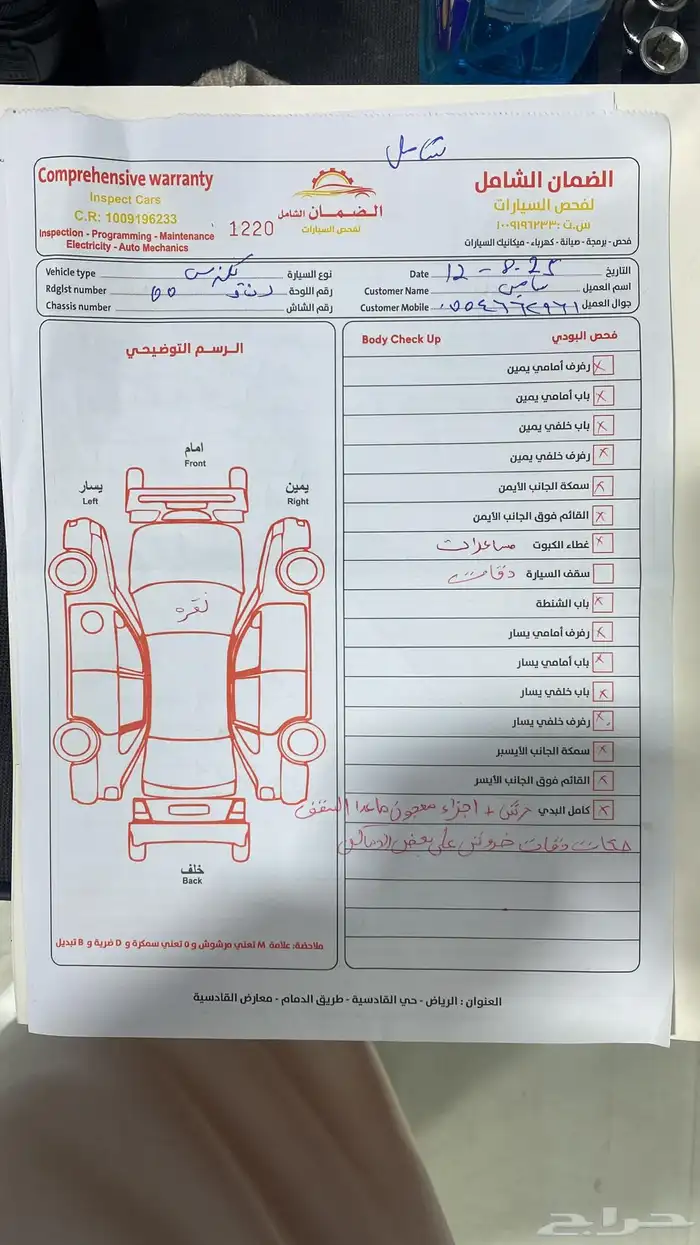 شامل
Comprehensive warranty
Inspect Cars
C.R: 1009196233
Inspection - Programming - Maintenance
Electricity - Auto Mechanics
1220
الضمان الشامل
لفحص السيارات
الضمان الشامل
لفحص السيارات
س.ت :١٠٠٩١٩٦٢٣٣
فحص - برمجة - صيانة - كهرباء - ميكانيك السيارات
Vehicle type لكزس نوع السيارة
Date 12 - 8 - 25 التاريخ
Rdglst number رقم اللوحة
Customer Name سامي اسم العميل
Chassis number رقم الشاش
Customer Mobile جوال العميل
الرسم التوضيحي
امام
Front
يسار
Left
يمين
Right
نقره
خلف
Back
ملاحظة: علامة M تعني مرشوش و o تعني سمكرة و D ضربة و B تبديل
Body Check Up فحص البودي
x رفرف أمامي يمين
x باب أمامي يمين
x باب خلفي يمين
x رفرف خلفي يمين
x سمكة الجانب الأيمن
x القائم فوق الجانب الأيمن
x غطاء الكبوت مساعدات
سقف السيارة دقات
x باب الشنطة
x رفرف أمامي يسار
x باب أمامي يسار
x باب خلفي يسار
x رفرف خلفي يسار
x سمكة الجانب الأيسبر
x القائم فوق الجانب الأيسر
x كامل البدي مرتش + اجزاء معجون ماعدا السقف
دقات خدوش على بعض
العنوان : الرياض - حي القادسية - طريق الدمام - معارض القادسية
حراج